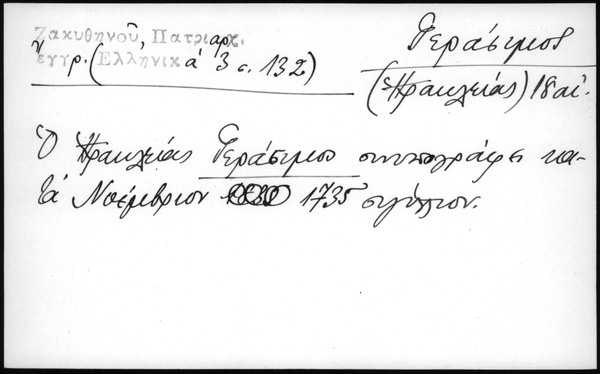 Ζακυθηνοῦ, Πατριαρχ.
ἔγγρ. (Ἑλληνικά 3 σ. 132)
Γεράσιμος
(Ἡρακλείας) 18 αἰ.
Ὁ Ἡρακλείας Γεράσιμος συνυπογράφει κα-
τὰ Νοέμβριον 1735 σιγίλλιον.